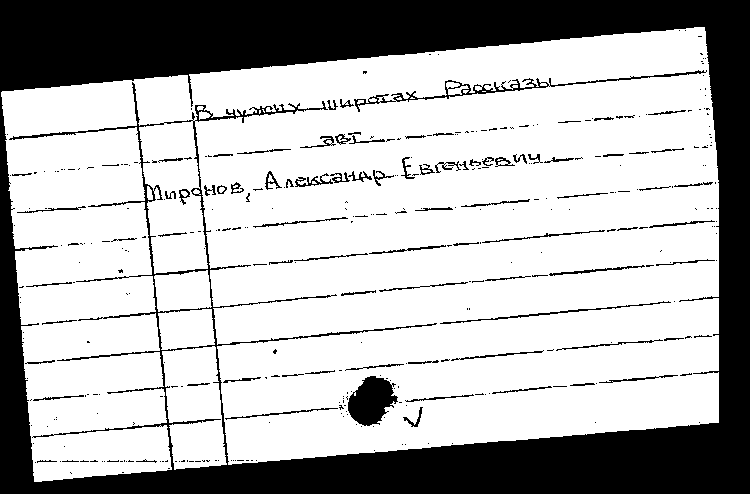 В чужих широтах Рассказы
авт.
Миронов, Александр Евгеньевич.